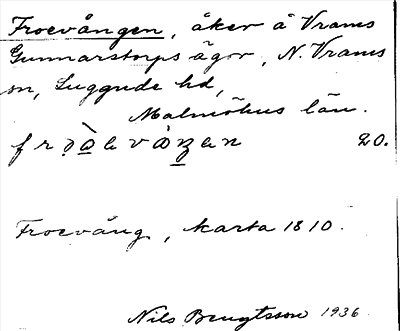 Troevången, åker å Vrams
Gunnarstorps ägor, N. Vrams
sn, Luggude hd,
Malmöhus län.
20.
Troevång, karta 1810.
Nils Bengtsson 1936